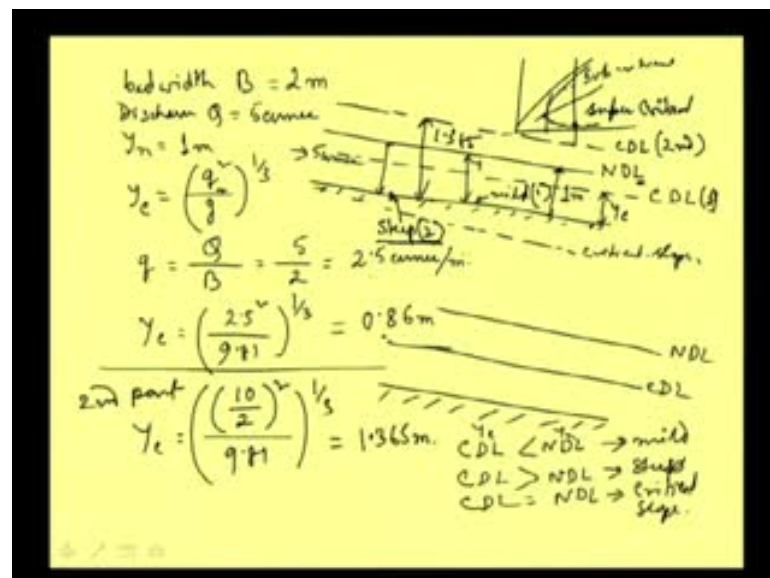 bed width B = 2m
Discharge Q = 5 cumec
yn = 1m
yc = (q²/g)^1/3
q = Q/B = 5/2 = 2.5 cumec/m.
yc = (2.5²/9.81)^1/3 = 0.86m
2nd part
yc = ((10/2)²/9.81)^1/3 = 1.365m.
Sub critical
Super Critical
CDL (2nd)
NDL
CDL (1)
1.365
mild (1)
1m
yc
Steep (2)
critical slope.
NDL
CDL
yc yn
CDL < NDL → mild
CDL > NDL → Steep
CDL = NDL → Critical
slope.